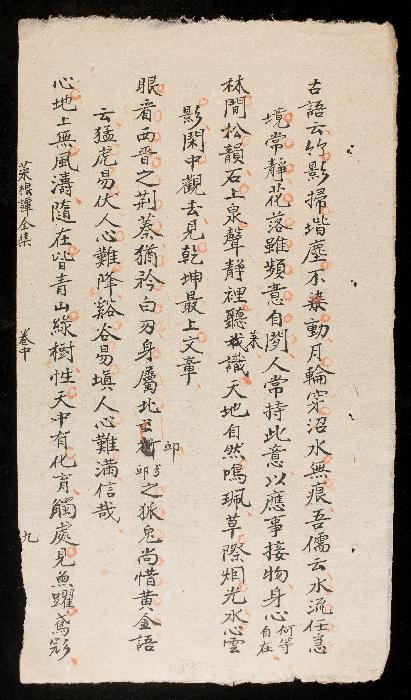 古語云竹影掃堦塵不動月輪穿沼水無痕吾儒云水流任急
境常靜花落雖頻意自閒人常持此意以應事接物身心何等自在
林間松韻石上泉聲靜裡聽來識天地自然鳴珮草際烟光水心雲
影閑中觀去見乾坤最上文章
眼看西晋之荆蓁猶矜白刃身屬北邙之狐兔尚惜黄金語
云猛虎易伏人心難降谿谷易塡人心難滿信哉
心地上無風濤隨在皆青山綠樹性天中有化育觸處見魚躍鳶飛
菜根譚全集 卷中 九